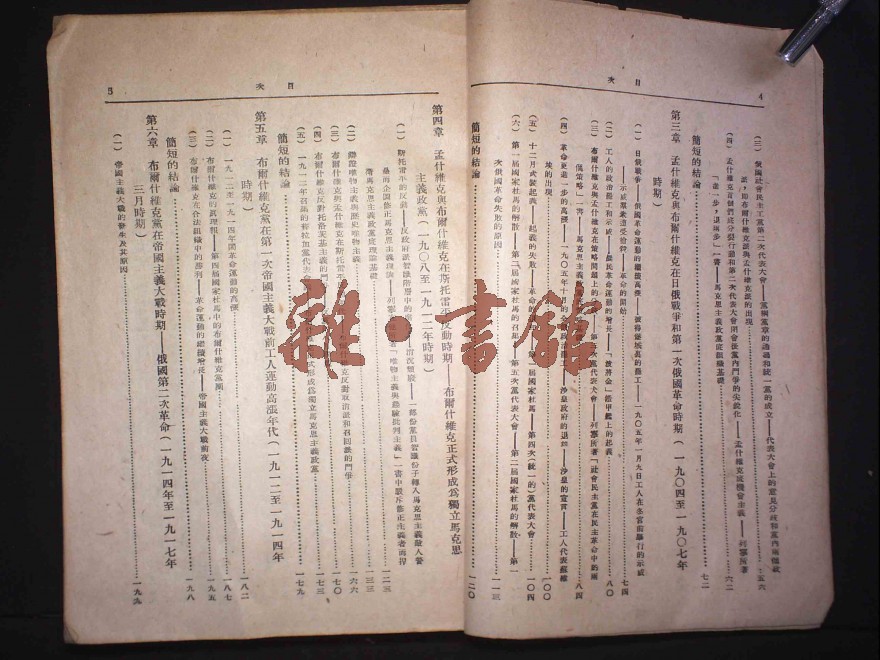 4
目次
(三) 俄國社會民主工黨第二次代表大會——黨綱黨章的通過和統一黨的成立——代表大會上的意見分歧和黨內兩種派
派,即布爾什維克派與孟什維克派的出現……五六
(四) 孟什維克首領們底分裂行動和第二次代表大會閉會後黨內鬥爭的尖銳化——孟什維克底機會主義——列寧所著
「進一步,退兩步」一書——馬克思主義政黨底組織基礎……六二
簡短的結論……七二
第三章 孟什維克與布爾什維克在日俄戰爭和第一次俄國革命時期(一九〇四至一九〇七年
時期)
(一) 日俄戰爭——俄國革命運動的繼續高漲——彼得堡城裏的罷工——一九〇五年一月九日工人在冬宮前舉行的示威
——示威羣衆遭受槍殺——革命的開始……七四
(二) 工人的政治罷工和示威——農民革命運動的增長——「波將金」鐵甲艦上的起義……八〇
(三) 布爾什維克與孟什維克在策略問題上的——第三次黨代表大會——列寧所著「社會民主黨在民主革命中的兩
個策略」一書——馬克思主義政黨……八四
(四) 革命更進一步的高漲——一九〇五年十月的全俄政治罷工——沙皇政府的退却——沙皇的宣言——工人代表蘇維
埃的出現……一〇〇
(五) 十二月武裝起義——起義的失敗——革命的——第一屆國家杜馬——第四次(統一的)黨代表大會……一〇四
(六) 第一屆國家杜馬的解散——第二屆國家杜馬的召集——第五次黨代表大會——第二屆國家杜馬的解散——第一
次俄國革命失敗的原因……一一三
簡短的結論……一二〇
目次
5
第四章 孟什維克與布爾什維克在斯托雷平反動時期——布爾什維克正式形成爲獨立馬克思
主義政黨(一九〇八至一九一二年時期)
(一) 斯托雷平的反動——反政府派智識階層中的——消沉頹廢——一部份黨員智識份子轉入馬克思主義敵人營
壘而企圖修正馬克思主義理論——列寧「唯物主義與經驗批判主義」一書中駁斥修正主義者而捍
衛馬克思主義政黨底理論基礎……一二三
(二) 辯證唯物主義與歷史唯物主義……一三三
(三) 布爾什維克與孟什維克在斯托雷平——布爾什維克反對取消派和召回派的鬥爭……一六六
(四) 布爾什維克反對托洛茨基主義的鬥……一七〇
(五) 一九一二年召集的布拉格黨代表……正式形成爲獨立馬克思主義政黨……一七三
簡短的結論……一七九
第五章 布爾什維克黨在第一次帝國主義大戰前工人運動高漲年代(一九一二至一九一四年
時期)
(一) 一九一二至一九一四年間革命運動的高漲……一八二
(二) 布爾什維克的眞理報——第四屆國家杜馬中的布爾什維克黨團……一八七
(三) 布爾什維克在合法組織中的勝利——革命運動的繼續增長——帝國主義大戰前夜……一九五
簡短的結論……一九八
第六章 布爾什維克黨在帝國主義大戰時期——俄國第二次革命(一九一四年至一九一七年
三月時期)
(一) 帝國主義大戰的發生及其原因……一九九
雜·書館